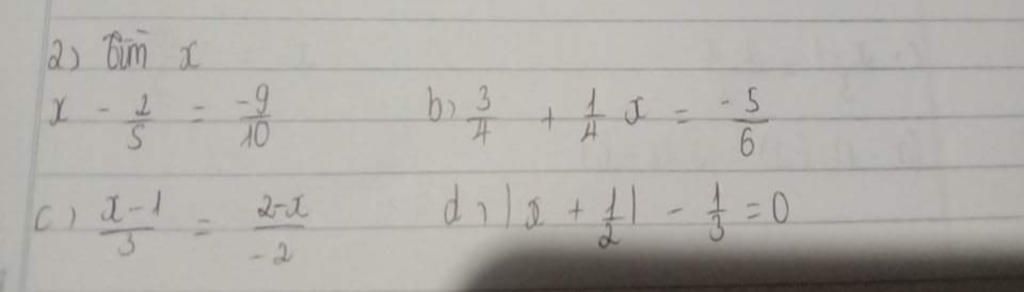 2) Tìm x
x - 2/5 = -9/10 b) 3/4 + 1/4 x = -5/6
c) x-1/3 = 2-x/-2 d) |x + 1/2| - 1/3 = 0